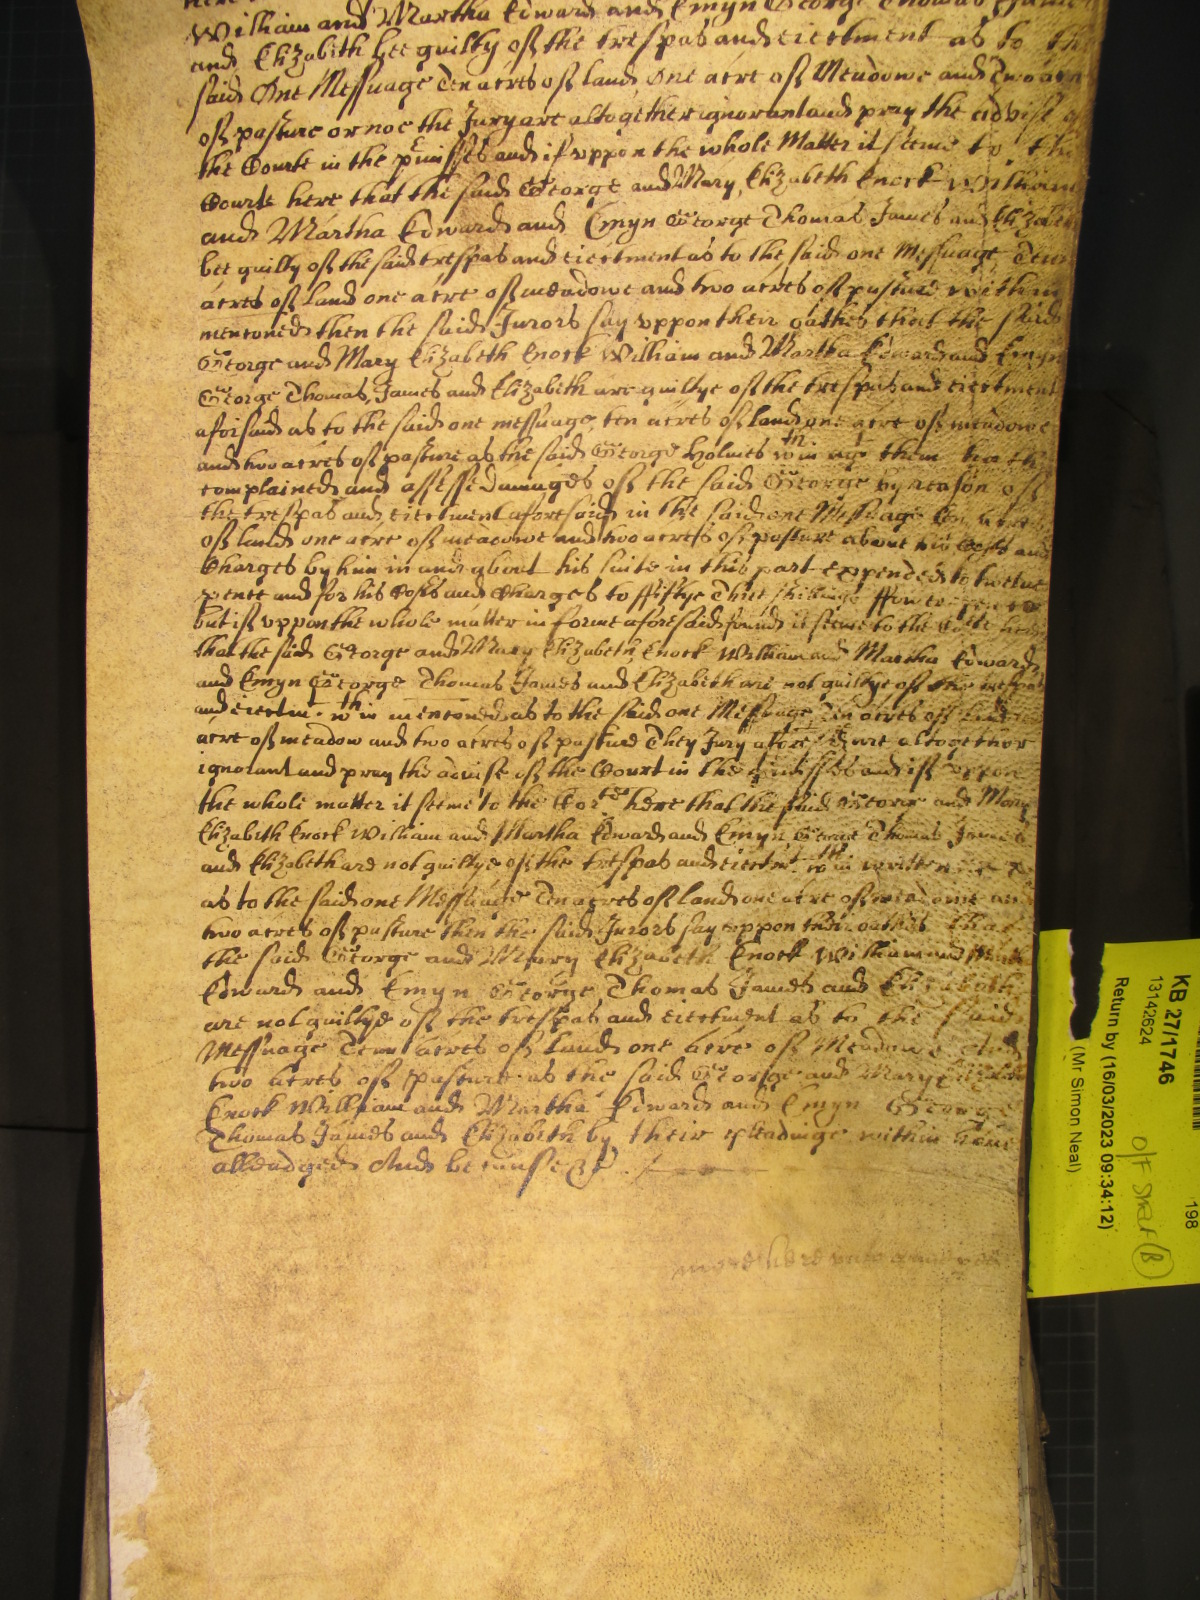 William and Martha Edward and Emyn George Thomas James
and Elizabeth bee guilty of the trespas and eiectment as to the
said One Messuage Ten acres of land One acre of Meadowe and Two acres
of pasture or noe the Jury are altogether ignorant and pray the advise of
the Courte in the p'misses and if vppon the whole Matter it seeme to the
Courte here that the said George and Mary, Elizabeth Enock William
and Martha Edward and Emyn George Thomas James and Elizabeth
bee guilty of the said trespas and eiectment as to the said one Messuage Tenn
acres of land one acre of meadowe and two acres of pasture within
mencioned then the said Jurors say vppon their oathes that the said
George and Mary Elizabeth Enock William and Martha Edward and Emyn
George Thomas, James and Elizabeth are guiltye of the trespas and eiectment
aforsaid as to the said one messuage, ten acres of land one acre of meadowe
and two acres of pasture as the said George Holmes w'thin ag't them hath
complained and assesse damages of the said George by reason of
the trespas and eiectment aforesaid in the said one Messuage ten acres
of land one acre of meadowe and two acres of pasture aboue his Costs and
Charges by him in and about his suite in this part expended to twelue
pence and for his Costs and Charges to fiftye Three shillings ffower pence
but if vppon the whole matter in forme aforesaid found it seeme to the Co'te here
that the said George and Mary Elizabeth, Enock William and Martha Edward
and Emyn George Thomas James and Elizabeth are not guiltye of the trespas
and eiectm't w'thin mencioned as to the said one Messuage Ten acres of land
acre of meadow and two acres of pasture They Jury aforesaid are altogether
ignorant and pray the advise of the Court in the p'misses and if vppon
the whole matter it seeme to the Corte here that the said George and Mary
Elizabeth Enock William and Martha Edward and Emyn George Thomas James
and Elizabeth are not guiltye of the trespas and eiectm't w'thin written
as to the said one Messuage Ten acres of land one acre of meadowe and
two acres of pasture then the said Jurors say vppon their oathes that
the said George and Mary Elizabeth Enock William and Martha
Edward and Emyn George Thomas James and Elizabeth
are not guiltye of the trespas and eiectment as to the said
Messuage Tenn acres of land one acre of Meadowe And
two acres of pasture as the said George and Mary Elizabeth
Enock William and Martha Edward and Emyn George
Thomas James and Elizabeth by their pleadinge within haue
alleadged And because &c
KB 27/1746
13142624
Return by (16/03/2023 09:34:12)
(Mr Simon Neal)
198